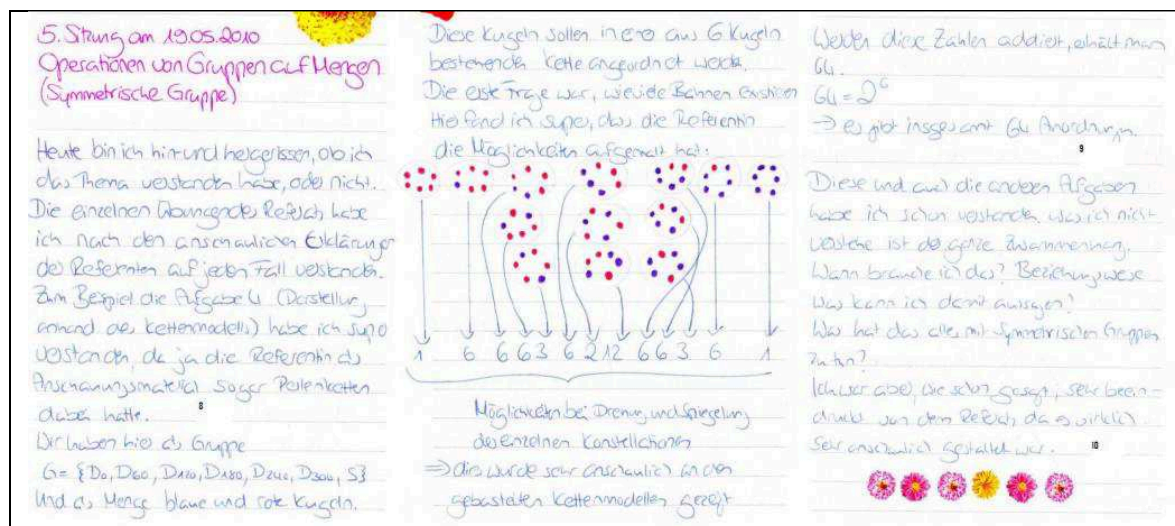 5. Sitzung am 19.05.2010
Operationen von Gruppen auf Mengen
(Symmetrische Gruppe)
Heute bin ich hin und hergerissen, ob ich
das Thema verstanden habe, oder nicht.
Die einzelnen Übungen des Referats habe
ich nach den anschaulichen Erklärungen
des Referenten auf jeden Fall verstanden.
Zum Beispiel die Aufgabe 4 (Darstellung
anhand des Kettenmodells) habe ich super
verstanden, da ja die Referentin als
Anschauungsmaterial sogar Perlenketten
dabei hatte.
8
Wir haben hier als Gruppe
G = {D0, D60, D120, D180, D240, D300, S}
Und als Menge blaue und rote Kugeln.
Diese Kugeln sollen in einer aus 6 Kugeln
bestehenden Kette angeordnet werden.
Die erste Frage war, wieviele Bahnen existieren
Hier fand ich super, dass die Referentin
die Möglichkeiten aufgemalt hat:
1 6 6 6 3 6 2 12 6 6 3 6 1
Möglichkeiten bei Drehung und Spiegelung
der einzelnen Konstellationen
⇒ dies wurde sehr anschaulich an den
gebastelten Kettenmodellen gezeigt
Werden diese Zahlen addiert, erhält man
64.
64 = 2^6
→ es gibt insgesamt 64 Anordnungen.
9
Diese und auch die anderen Aufgaben
habe ich schon verstanden, was ich nicht
verstehe ist der ganze Zusammenhang.
Wann brauche ich das? Beziehungsweise
was kann ich damit aussagen?
Was hat das alles mit Symmetrischen Gruppen
zu tun?
Ich war aber, wie schon gesagt, sehr beein-
druckt von dem Referat, da es wirklich
sehr anschaulich gestaltet war.
10